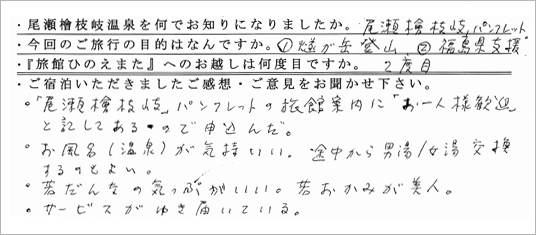 ・尾瀬檜枝岐温泉を何でお知りになりましたか。尾瀬檜枝岐パンフレット
・今回のご旅行の目的はなんですか。①燧が岳登山、②福島県支援
・『旅館ひのえまた』へのお越しは何度目ですか。 2度目
・ご宿泊いただきましたご感想・ご意見をお聞かせ下さい。
。「尾瀬檜枝岐」パンフレットの旅館案内に「お一人様歓迎」
と記してあるので申込んだ。
。お風呂(温泉)が気持いい。途中から男湯/女湯交換
するのもよい。
。若だんなの気っぷがいい。若おかみが美人。
。サービスがゆき届いている。